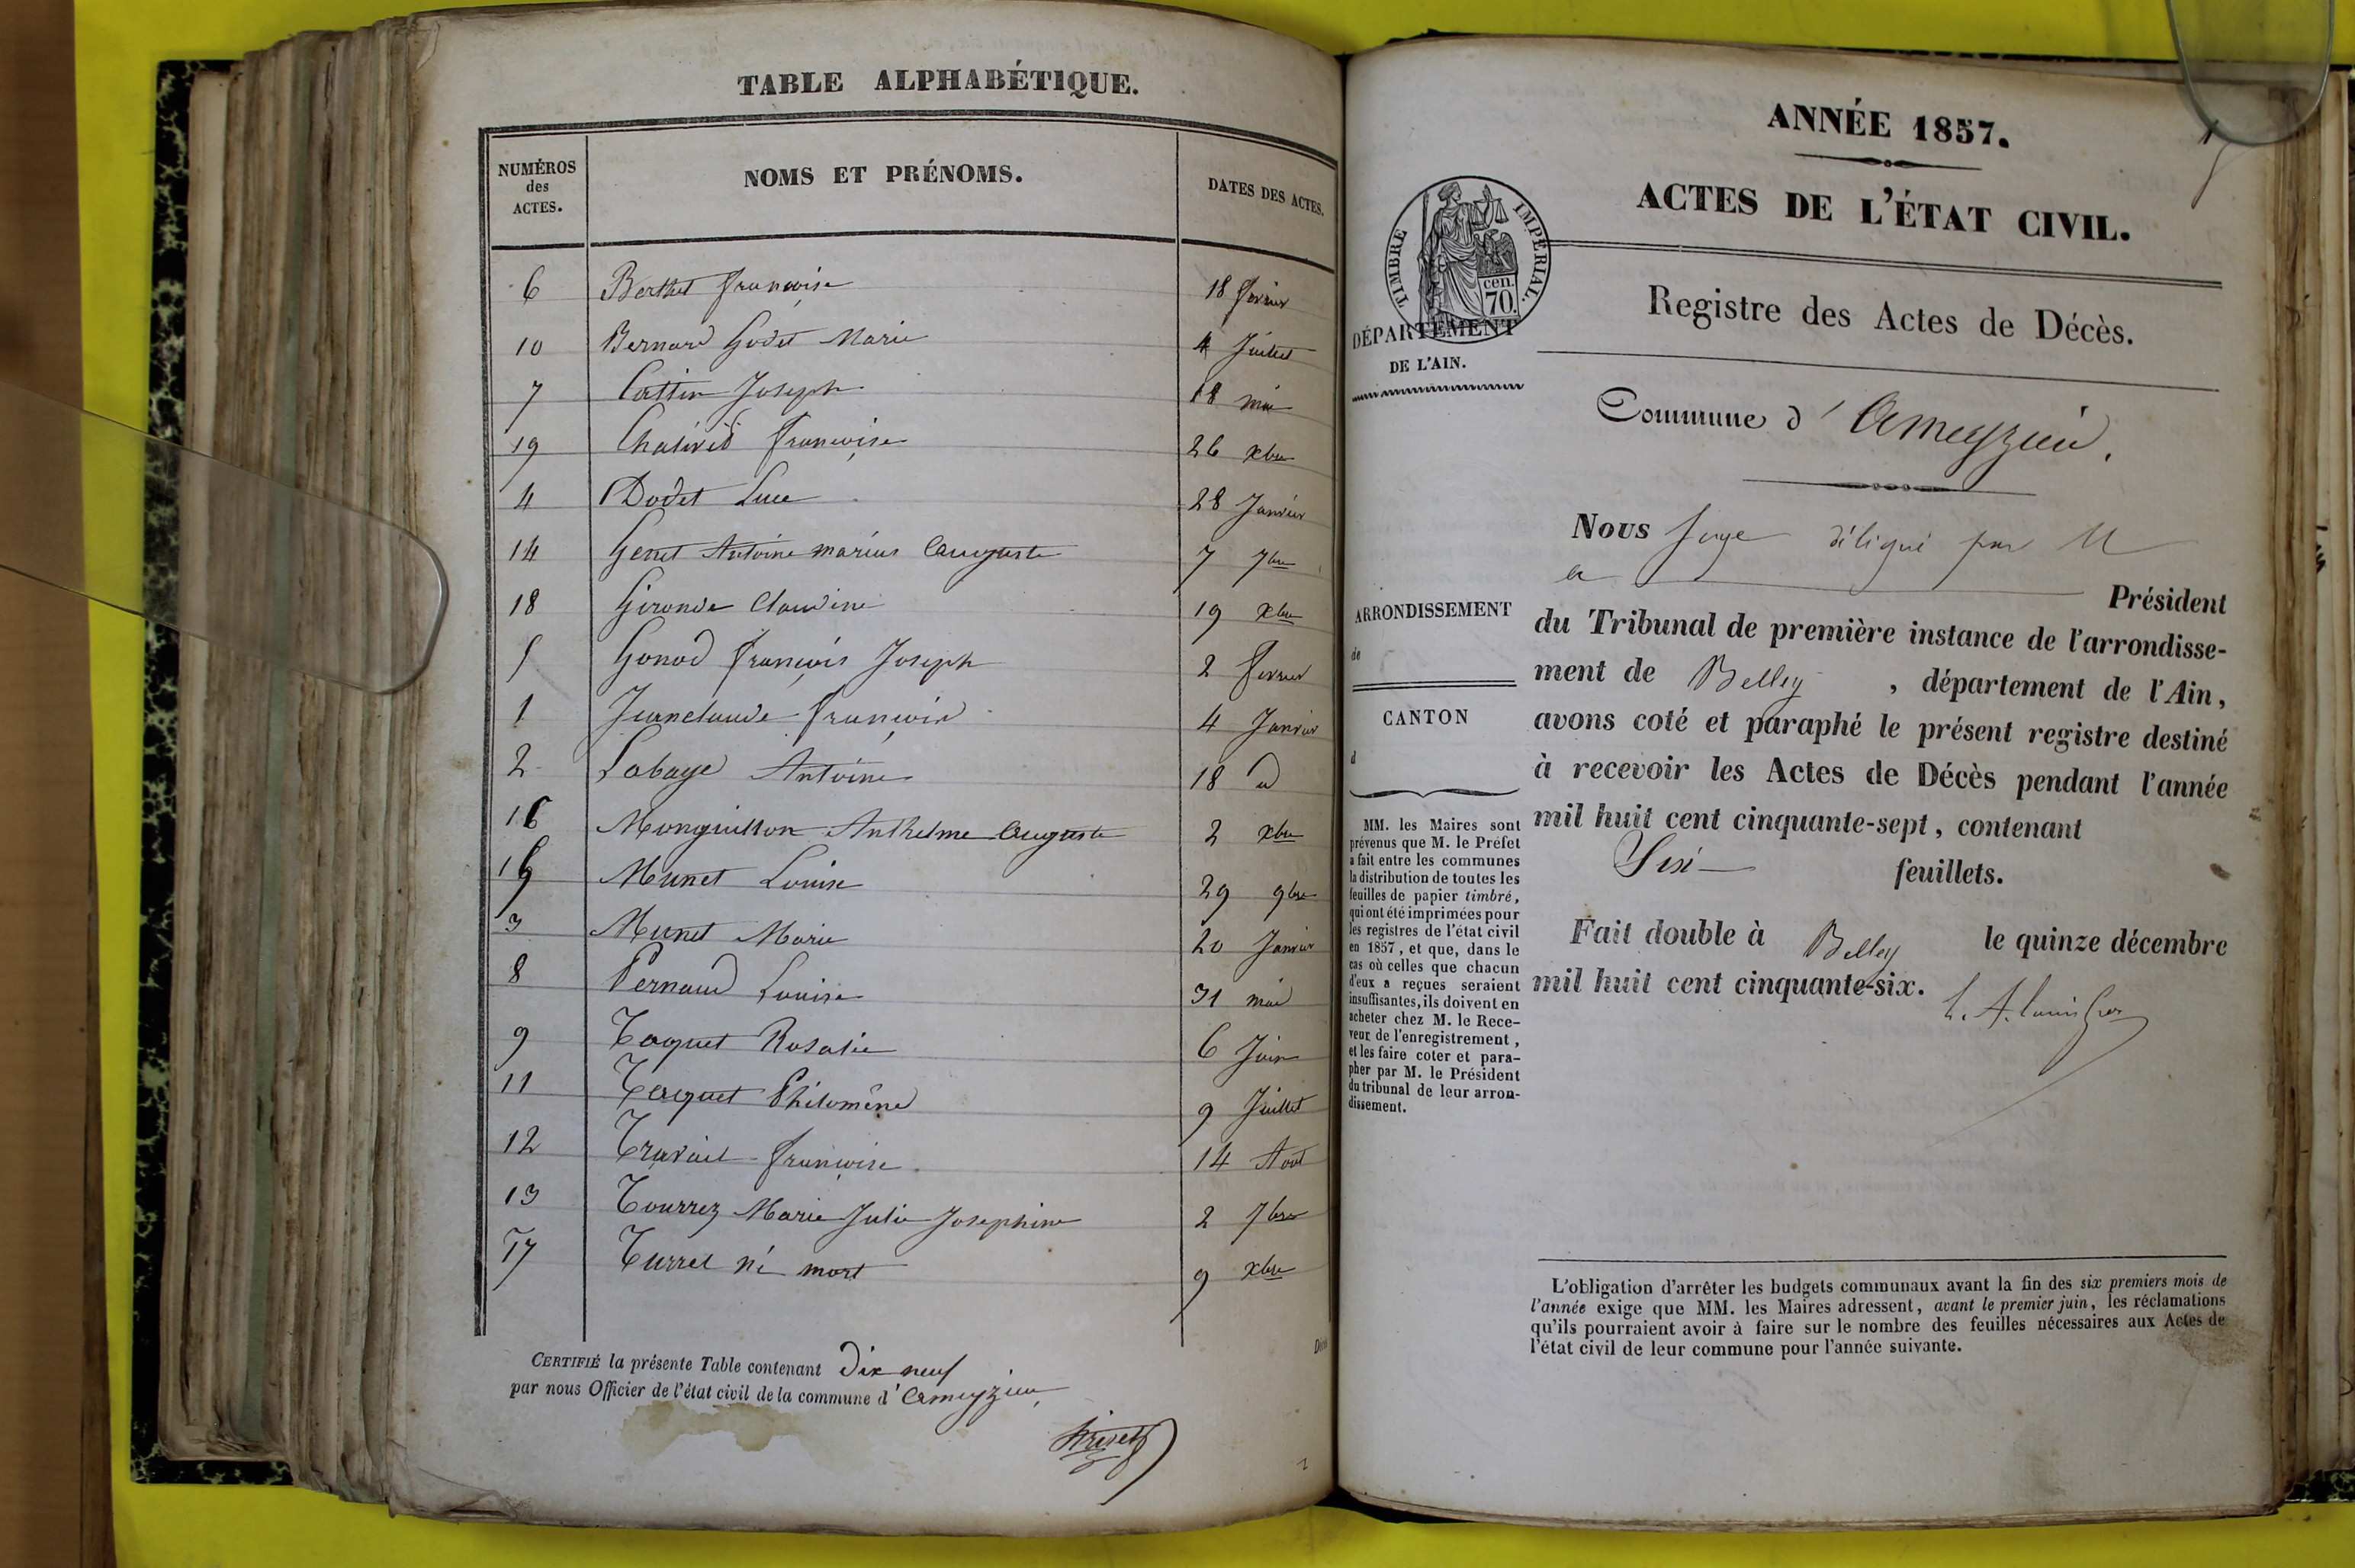 TABLE ALPHABÉTIQUE.
NUMÉROS des ACTES. NOMS ET PRÉNOMS. DATES DES ACTES.
6 Berthet françoise 18 fevrier
10 Bernard Godet Marie 4 Juillet
7 Cattin Joseph 18 mai
19 françoise 26 xbre
4 Dodet Luce 28 Janvier
14 Genet Antoine marius auguste 7 7bre
18 Gironde Claudine 19 xbre
5 Gonod françois Joseph 2 fevrier
1 Jeanclaude françois 4 Janvier
2 Labaye Antoine 18 d
16 Monguillon Anthelme auguste 2 xbre
15 Munet Louise 29 9bre
3 Munet Marie 20 Janvier
8 Pernaud Louise 31 mai
9 Taquet Rosalie 6 Juin
11 Taquet Philomène 9 Juillet
12 Travail françoise 14 Aout
13 Tourrez Marie Julie Josephine 2 7bre
17 Turrel né mort 9 xbre
CERTIFIÉ la présente Table contenant dix neuf
par nous Officier de l'état civil de la commune d'ameyzieu,
ANNÉE 1857.
1
ACTES DE L'ÉTAT CIVIL.
TIMBRE IMPÉRIAL.
cen.
70.
DÉPARTEMENT
DE L'AIN.
Registre des Actes de Décès.
Commune d'Ameyzieu.
ARRONDISSEMENT
de
CANTON
d
MM. les Maires sont
prévenus que M. le Préfet
a fait entre les communes
la distribution de toutes les
feuilles de papier timbré,
qui ont été imprimées pour
les registres de l'état civil
en 1857, et que, dans le
cas où celles que chacun
d'eux a reçues seraient
insuffisantes, ils doivent en
acheter chez M. le Rece-
veur de l'enregistrement,
et les faire coter et para-
pher par M. le Président
du tribunal de leur arron-
dissement.
Nous Juge délégué par M
le Président
du Tribunal de première instance de l'arrondisse-
ment de Belley , département de l'Ain,
avons coté et paraphé le présent registre destiné
à recevoir les Actes de Décès pendant l'année
mil huit cent cinquante-sept, contenant
Six feuillets.
Fait double à Belley le quinze décembre
mil huit cent cinquante-six.
L'obligation d'arrêter les budgets communaux avant la fin des six premiers mois de
l'année exige que MM. les Maires adressent, avant le premier juin, les réclamations
qu'ils pourraient avoir à faire sur le nombre des feuilles nécessaires aux Actes de
l'état civil de leur commune pour l'année suivante.